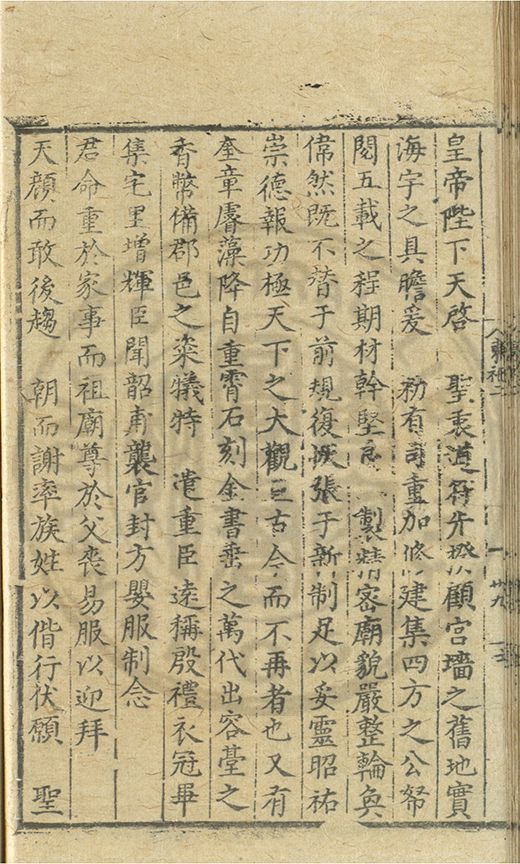 皇帝陛下天啓　聖衷道符先揆顧宮墻之舊地實
海宇之具瞻爰　勑有司重加修建集四方之公帑
閱五載之程期材幹堅良　製精密廟貌嚴整輪奐
偉然既不替于前規復恢張于新制足以妥靈昭祐
崇德報功極天下之大觀亘古今而不再者也又有
奎章睿藻降自重霄石刻金書垂之萬代出容臺之
香幣備郡邑之粢犧特　遣重臣逺稱殷禮衣冠畢
集宅里增輝臣聞韶甫襲官封方嬰服制念
君命重於家事而祖廟尊於父喪易服以迎拜
天顔而敢後趨　朝而謝率族姓以偕行伏願　聖